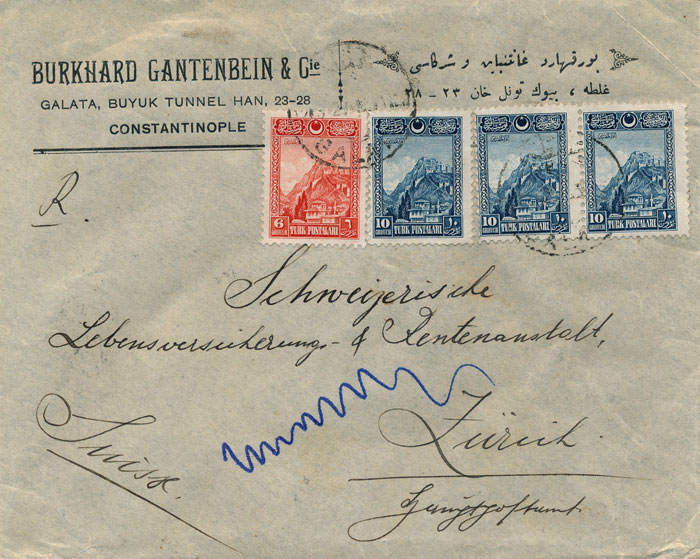 BURKHARD GANTENBEIN & Cie
GALATA, BUYUK TUNNEL HAN, 23-28
CONSTANTINOPLE
بورقهارد غانتنباین و شرکاسی
غلطه ، بیوك تونل خان ٢٣ – ٢٨
R.
6 ٦
TURK POSTALARI
10 ١٠
GROUCH
TURK POSTALARI
10 ١٠
GROUCH
TURK POSTALARI
10 ١٠
GROUCH
TURK POSTALARI
GALA
Schweizerische
Lebensversicherungs- & Rentenanstalt,
Zürich.
Hauptpostamt.
Suisse.